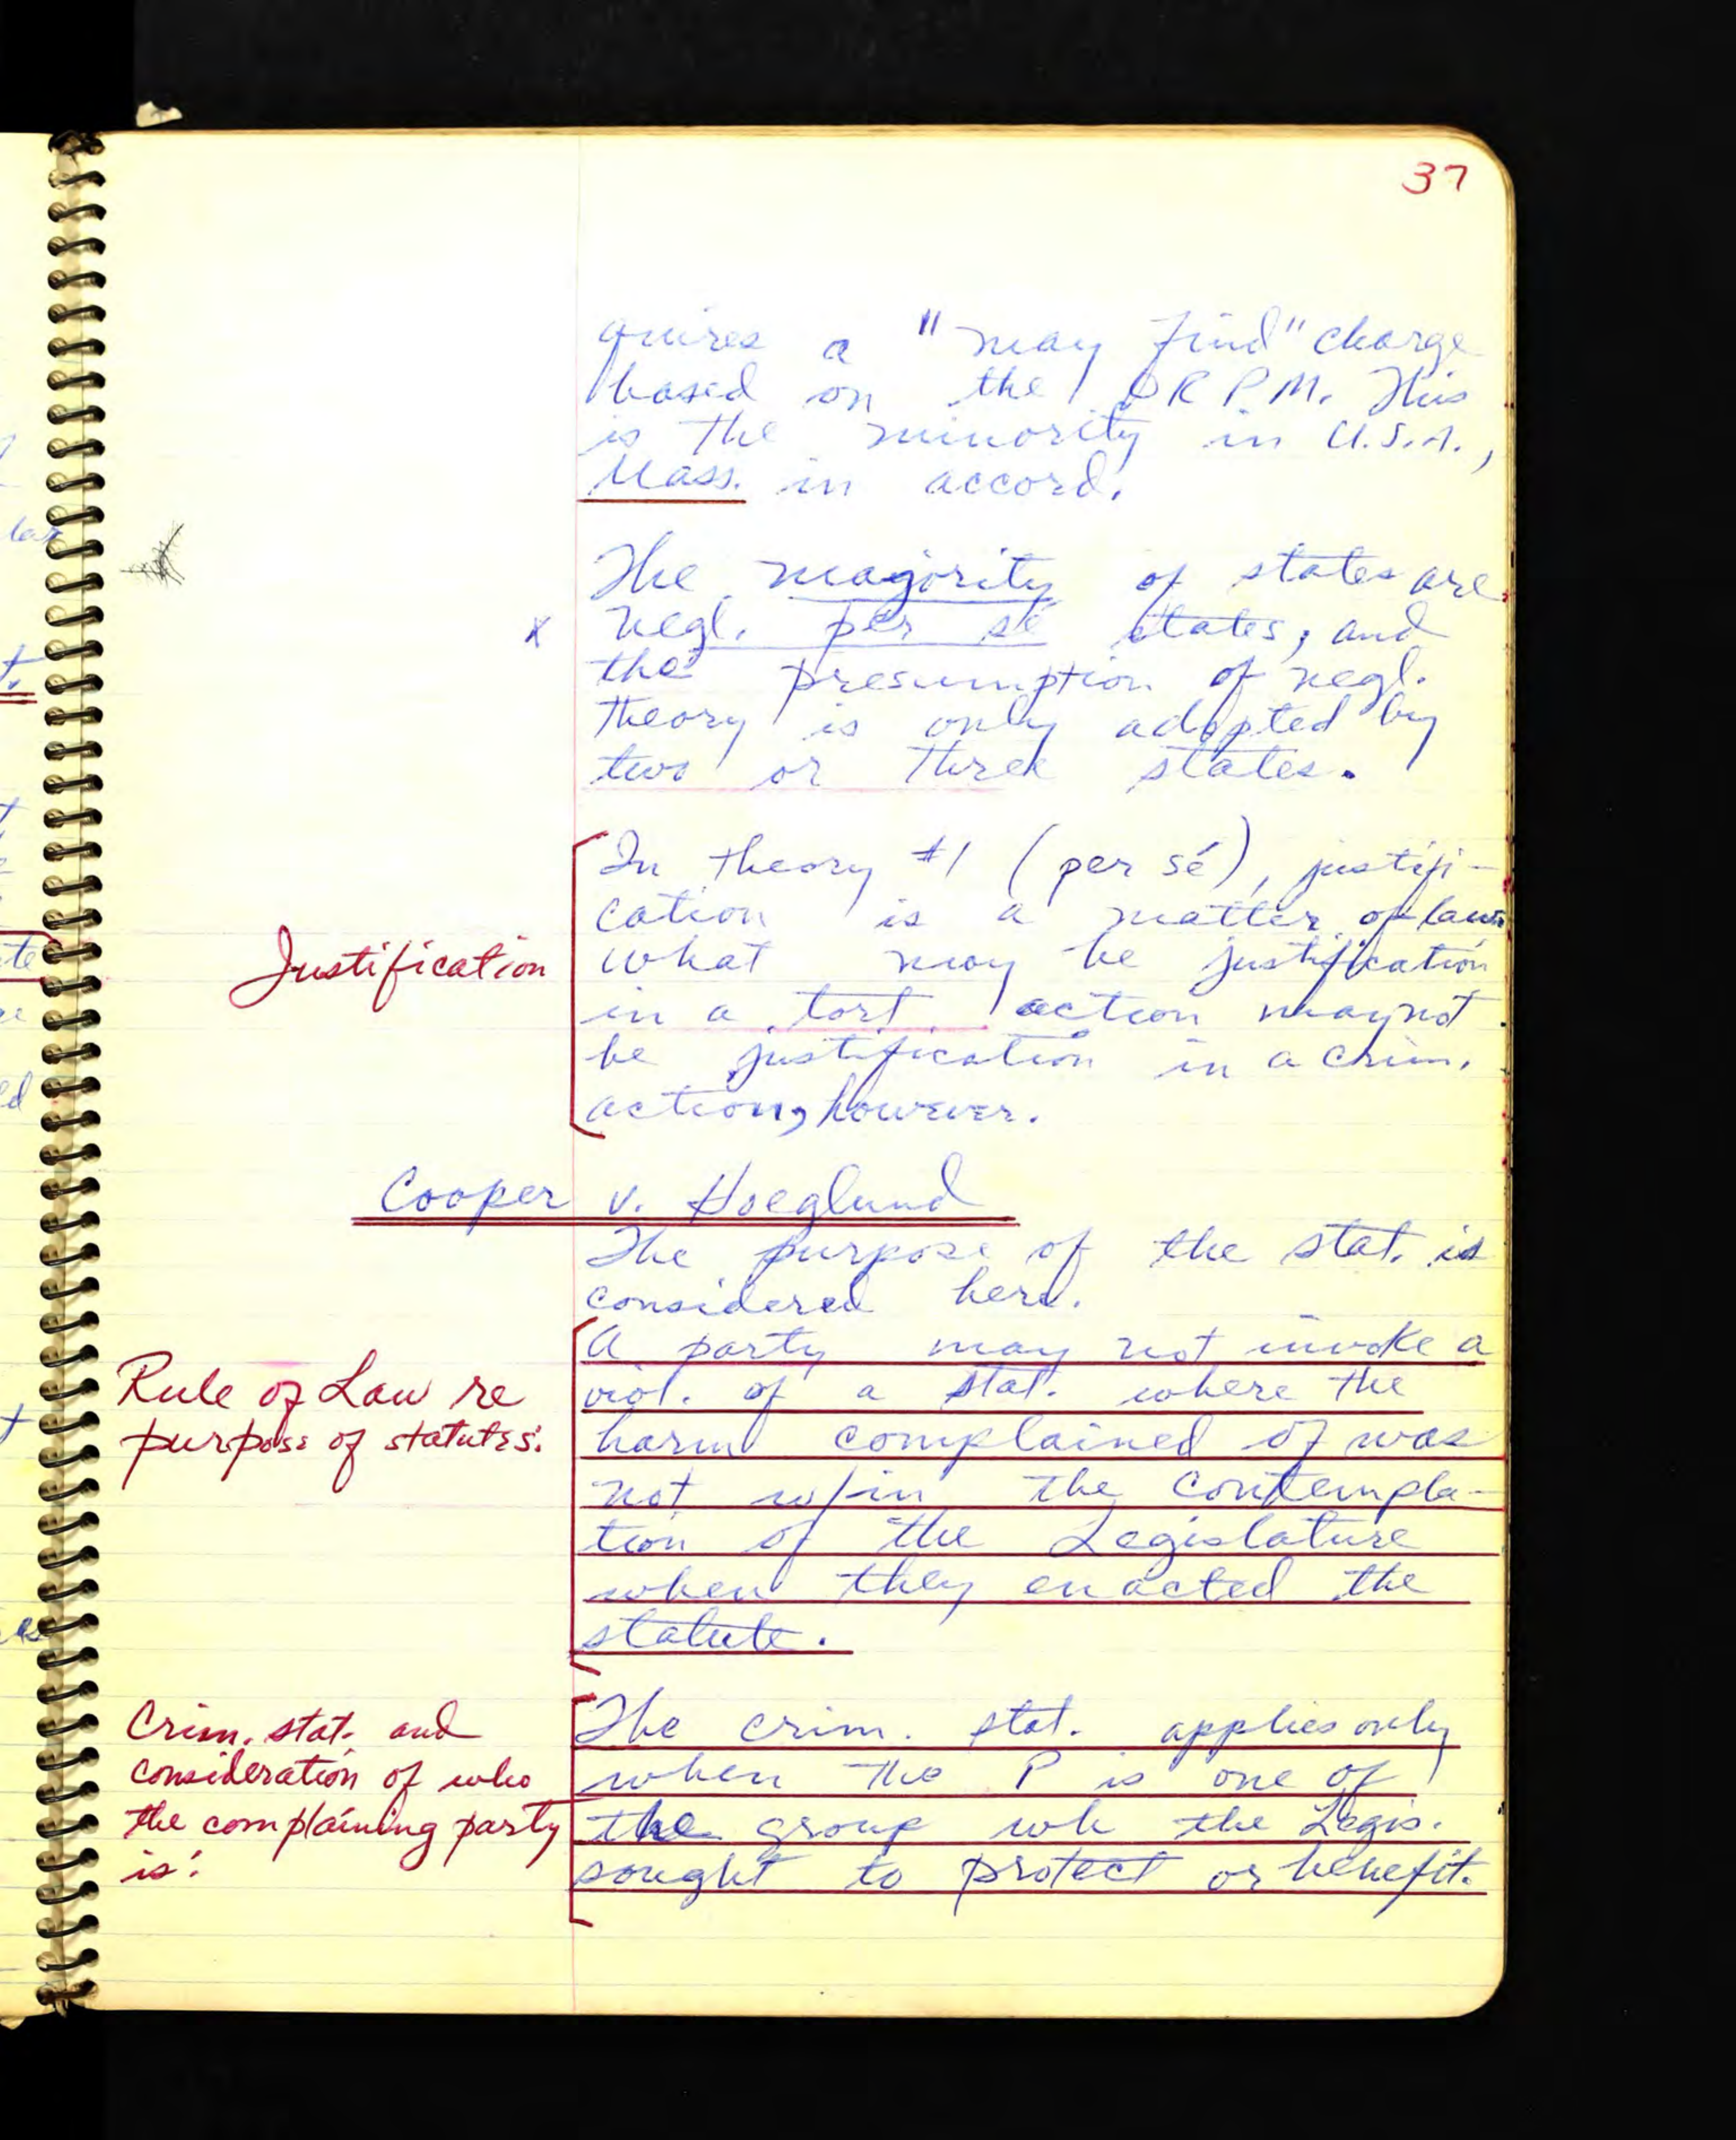 37
quires a "may find" charge
based on the ORPM. This
is the minority in U.S.A.,
Mass. in accord.
The majority of states are
x negl. per se states, and
the presumption of negl.
theory is only adopted by
two or three states.
Justification
In theory #1 (per sé), justifi-
cation is a matter of law.
what may be justification
in a tort action may not
be justification in a crim.
action, however.
Cooper v. Hoeglund
The purpose of the stat. is
considered here.
Rule of Law re
purpose of statutes:
A party may not invoke a
viol. of a stat. where the
harm complained of was
not w/in the contempla-
tion of the Legislature
when they enacted the
statute.
Crim. stat. and
consideration of who
the complaining party
is:
The crim. stat. applies only
when the P is one of
the group wh the Legis.
sought to protect or benefit.